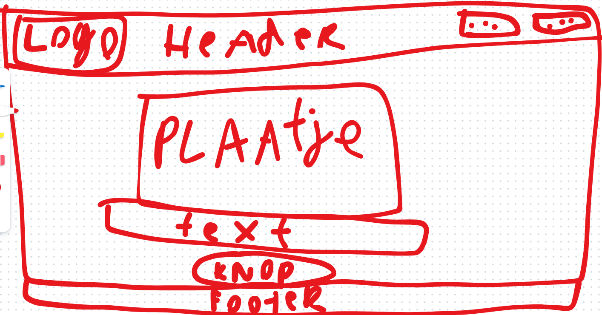 Logo Header
PLAAtje
text
KNOP
FOOTER